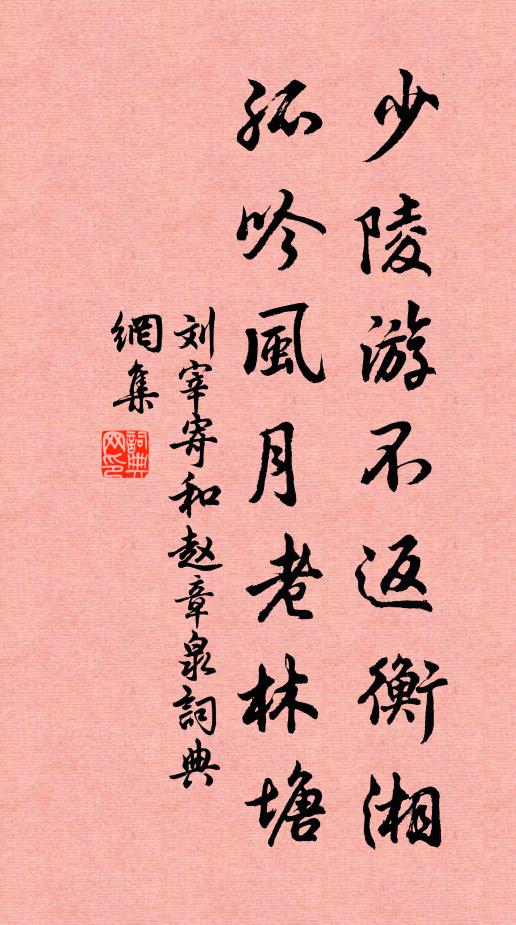 少陵游不返衡湘
孤吟風月老林塘
刘宰寄和赵章泉詞典
網集
詞典
网印